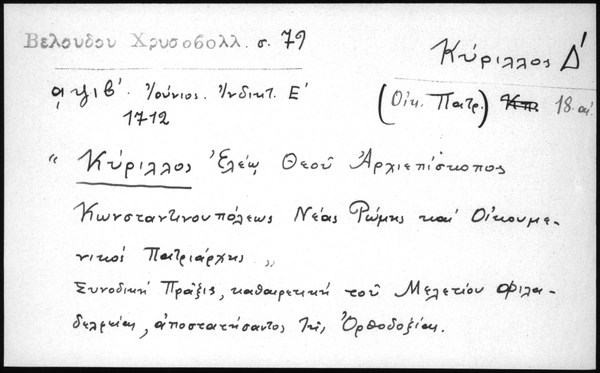 Βελουδου Χρυσοβολλ. σ. 79
Κύριλλος Δ'
͵αψιβ'. Ἰούνιος. Ἰνδικτ. Ε'
(Οἰκ. Πατρ.) Κπ. 18. αἰ.
1712
" Κύριλλος Ἐλέῳ Θεοῦ Ἀρχιεπίσκοπος
Κωνσταντινουπόλεως Νέας Ρώμης καὶ Οἰκουμε-
νικὸς Πατριάρχης „
Συνοδικὴ Πρᾶξις, καθαιρετικὴ τοῦ Μελετίου Φιλα-
δελφείας, ἀποστατήσαντος τῆς Ὀρθοδοξίας.